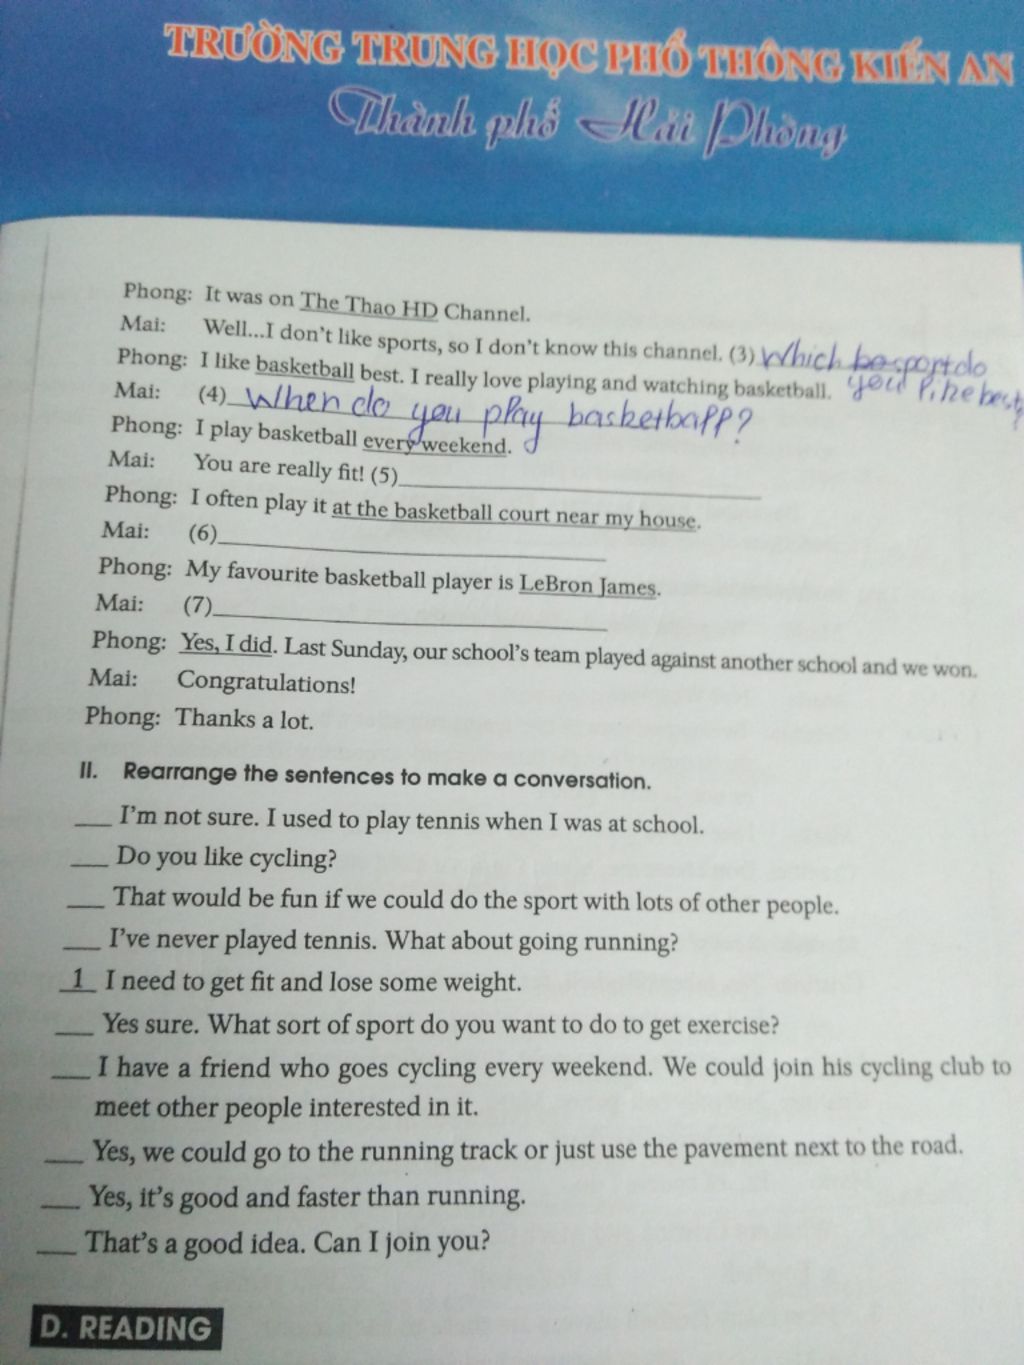 TRƯỜNG TRUNG HỌC PHỔ THÔNG KIẾN AN
Thành phố Hải Phòng
Phong: It was on The Thao HD Channel.
Mai: Well...I don't like sports, so I don't know this channel. (3) Which sport do
you like best?
Phong: I like basketball best. I really love playing and watching basketball.
Mai: (4) When do you play basketball?
Phong: I play basketball every weekend.
Mai: You are really fit! (5)
Phong: I often play it at the basketball court near my house.
Mai: (6)
Phong: My favourite basketball player is LeBron James.
Mai: (7)
Phong: Yes, I did. Last Sunday, our school's team played against another school and we won.
Mai: Congratulations!
Phong: Thanks a lot.
II. Rearrange the sentences to make a conversation.
___ I'm not sure. I used to play tennis when I was at school.
___ Do you like cycling?
___ That would be fun if we could do the sport with lots of other people.
___ I've never played tennis. What about going running?
1 I need to get fit and lose some weight.
___ Yes sure. What sort of sport do you want to do to get exercise?
___ I have a friend who goes cycling every weekend. We could join his cycling club to
meet other people interested in it.
___ Yes, we could go to the running track or just use the pavement next to the road.
___ Yes, it's good and faster than running.
___ That's a good idea. Can I join you?
D. READING